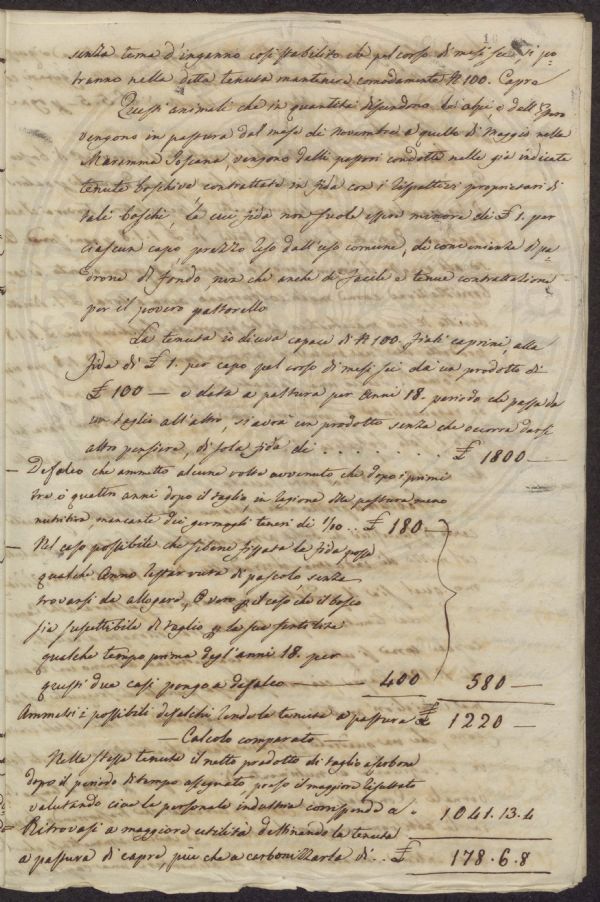 senza tema d'inganno così stabilito che pel corso di mesi sei si po=
tranno nella detta tenuta mantenere comodamente N 100. Capre
Questi animali che in quantità discendono le alpi, e dall'
vengono in pastura dal mese di Novembre a quello di Maggio nelle
Maremme Toscane, vengono dalli pastori condotte nelle già indicate
tenute boschive contrattate in fida con i rispettivi proprietari di
tali boschi, la cui fida non suole essere minore di £ 1. per
ciascun capo, prezzo reso dall'uso comune, di convenienza di pa=
drone di fondo, non che anche di facile e tenue contrattazione
per il povero pastorello
La tenuta io diceva capace di N 100. fiati caprini, alla
fida di £ 1. per capo pel corso di mesi sei dà un prodotto di
£ 100 — e data a pastura per anni 18. periodo che passa da
un taglio all'altro, si avrà un prodotto senza che occorra darsi
altro pensiere, di sola fida di . . . . . . . £ 1800 —
— Defalco che ammetto alcune volte avvenuto, che dopo i primi
tre o quattro anni dopo il taglio, in ragione della pastura meno
nutritiva, mancante dei germogli teneri di 1/10 .. £ 180 —
— Nel caso possibile che sebene fissata la fida possa
qualche Anno restar vuota di pascolo, senza
trovarsi da allogare, O vero pel caso, che il bosco
sia suscettibile di taglio p la sua fertilità
qualche tempo prima degl'anni 18. per
questi due casi pongo a defalco — 400 580 —
Ammessi i possibili defalchi rende la tenuta a pastura £ 1220 —
— Calcolo comparato —
Nella stessa tenuta il netto prodotto di taglio a carbone
dopo il periodo di tempo assegnato, preso il maggiore resultato
valutando cioè la personale industria corrisponde a . 1041.13.4
Ritrovasi a maggiore utilità destinando la tenuta
a pastura di capre, più che a carbonizzarla di .. £ 178.6.8